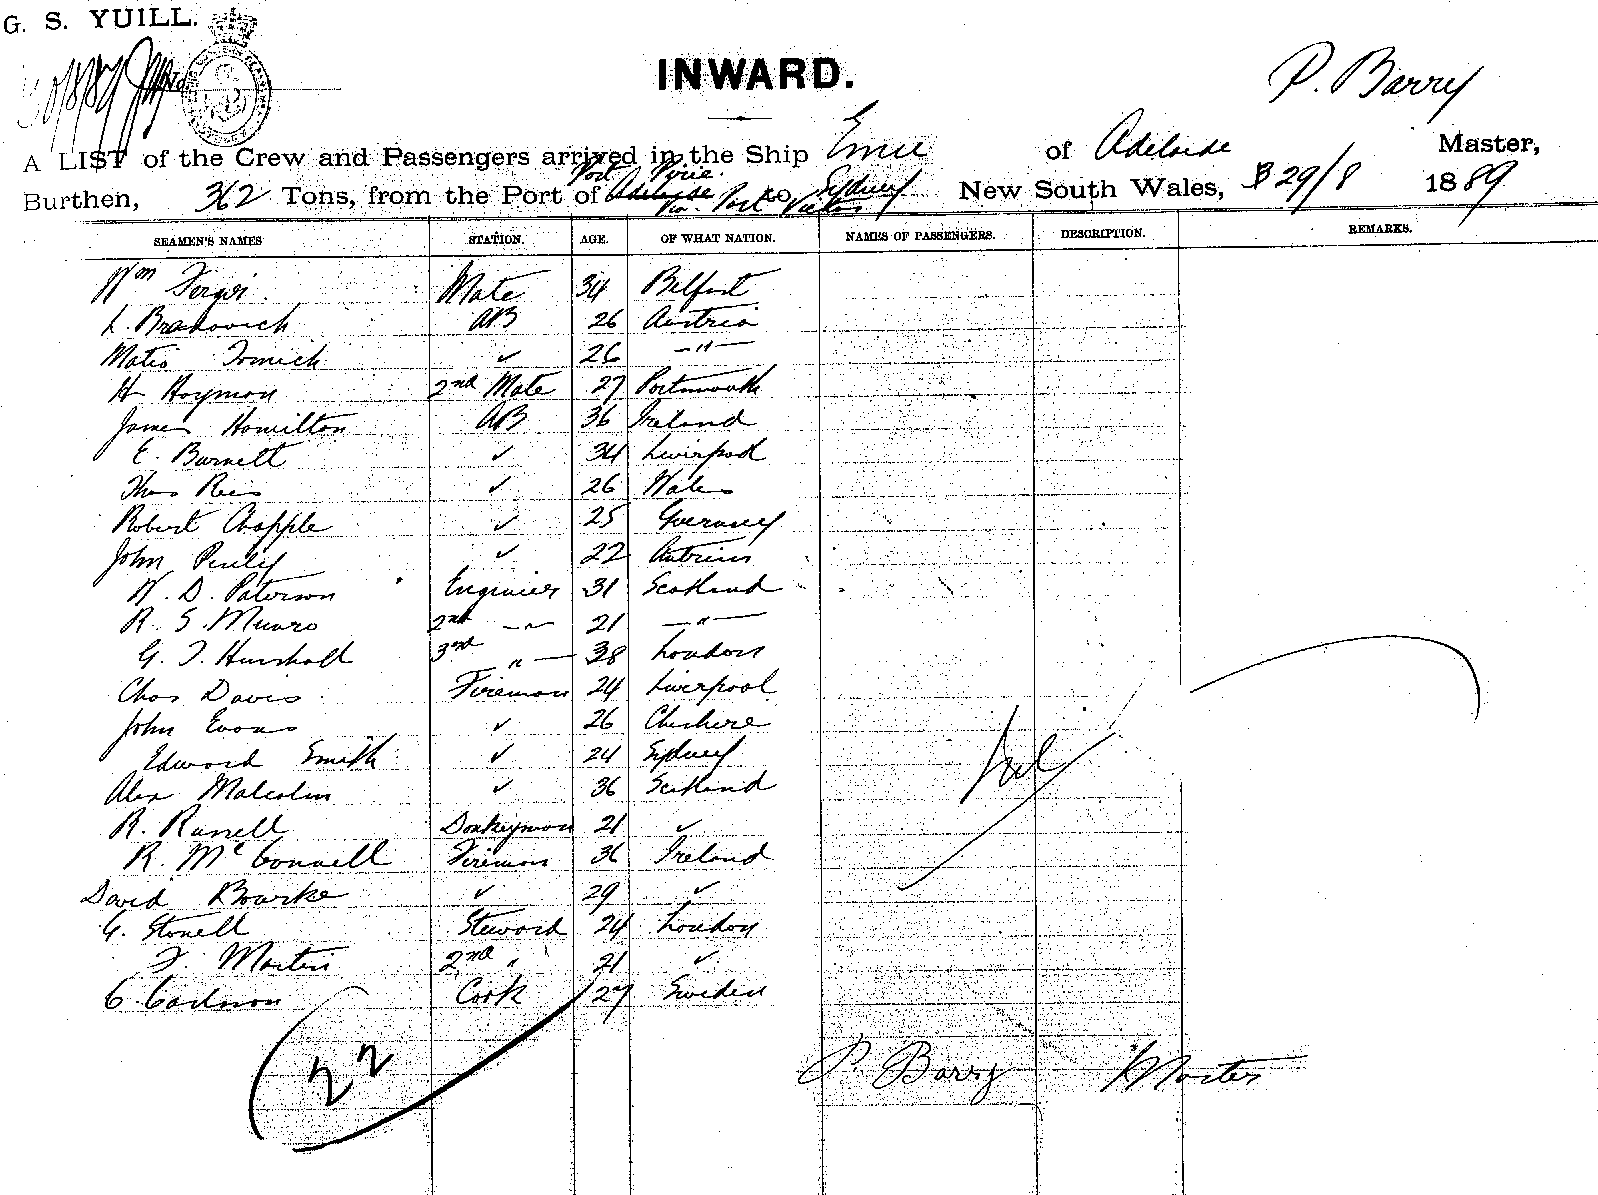 G. S. YUILL.
30/8/89
INWARD.
P. Barry
A LIST of the Crew and Passengers arrived in the Ship Emu of Adelaide Master,
Port Pirie.
Burthen, 362 Tons, from the Port of Adelaide to Sydney New South Wales, 29/8 1889
via Port Victor
SEAMEN'S NAMES STATION. AGE. OF WHAT NATION. NAMES OF PASSENGERS. DESCRIPTION. REMARKS.
Wm Mate 34 Belfast
L. Bradovich AB 26 Austria
Mateo Tomich ✓ 26 —"—
H Hayman 2nd Mate 27 Portsmouth
James Hamilton AB 36 Ireland
E. Burnett ✓ 34 Liverpool
Thos Rees ✓ 26 Wales
Robert Chapple ✓ 25 Guernsey
John ✓ 22
W. D. Paterson Engineer 31 Scotland
R. S. Munro 2nd —"— 21 —"—
G. T. 3rd " — 38 London
Chas Davis Fireman 24 Liverpool
John Evans ✓ 26 Cheshire
Edward Smith ✓ 24 Sydney
Alex Malcolm ✓ 36 Scotland
R. Russell Donkeyman 21 ✓
R. McConnell Fireman 36 Ireland
David Bourke ✓ 29 ✓
G. Stonell Steward 24 London
F. Martin 2nd " 21 ✓
C. Carlson Cook 27 Sweden
22
P. Barry Master